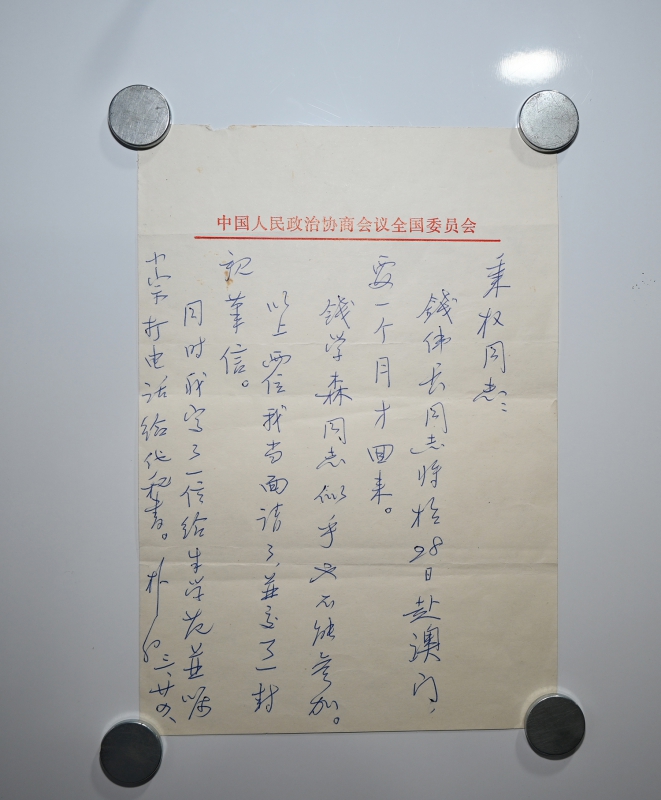 中国人民政治协商会议全国委员会
秉权同志：
錢伟长同志将於28日赴澳门，
要一个月才回来。
錢学森同志似乎也不能參加。
以上两位我当面請了，並交了一封
記筆信。
同时我写了一信给生学范並嘱
宗打电话给他秘書。朴
三、廿四、